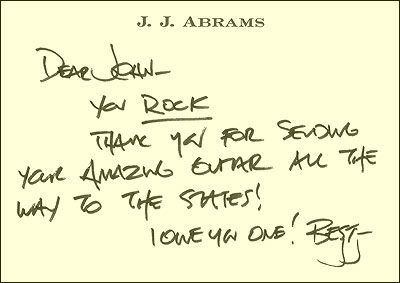 J. J. ABRAMS
DEAR JOHN—
YOU ROCK
THANK YOU FOR SENDING
YOUR AMAZING GUITAR ALL THE
WAY TO THE STATES!
I OWE YOU ONE! BEST—
JJ